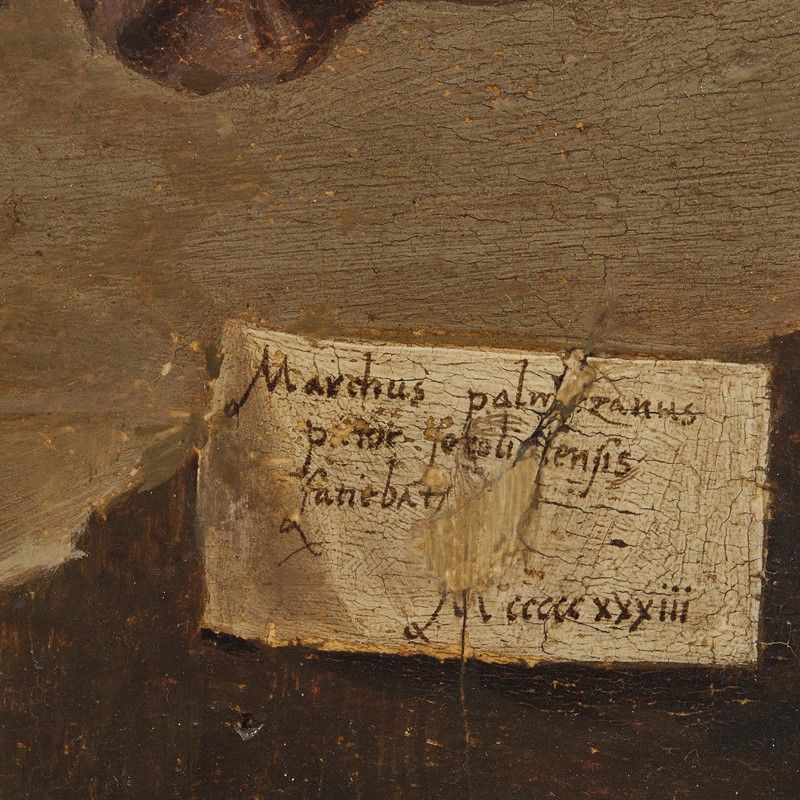 Marchus palmezanus
pictor foroliviensis
fatiebat
Mccccc xxxiii